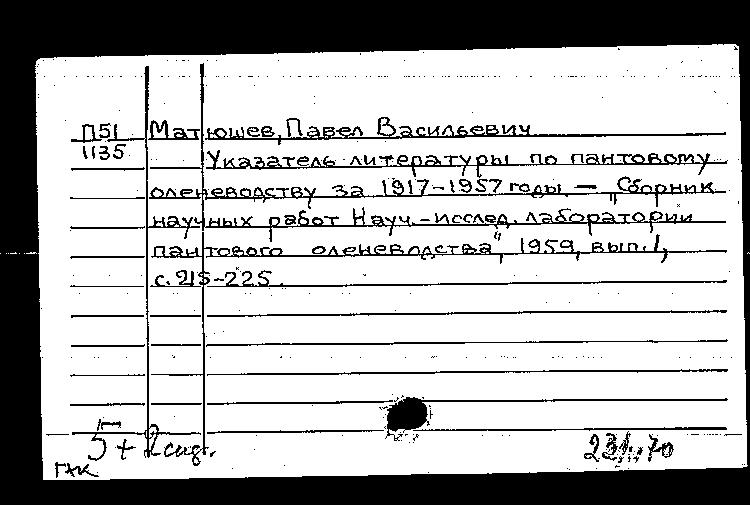 П51 Матюшев, Павел Васильевич
1135 Указатель литературы по пантовому
оленеводству за 1917-1957 годы. — "Сборник
научных работ Науч.-исслед. лаборатории
пантового оленеводства", 1959, вып. 1,
с. 215-225.
5 + 2
ГАК